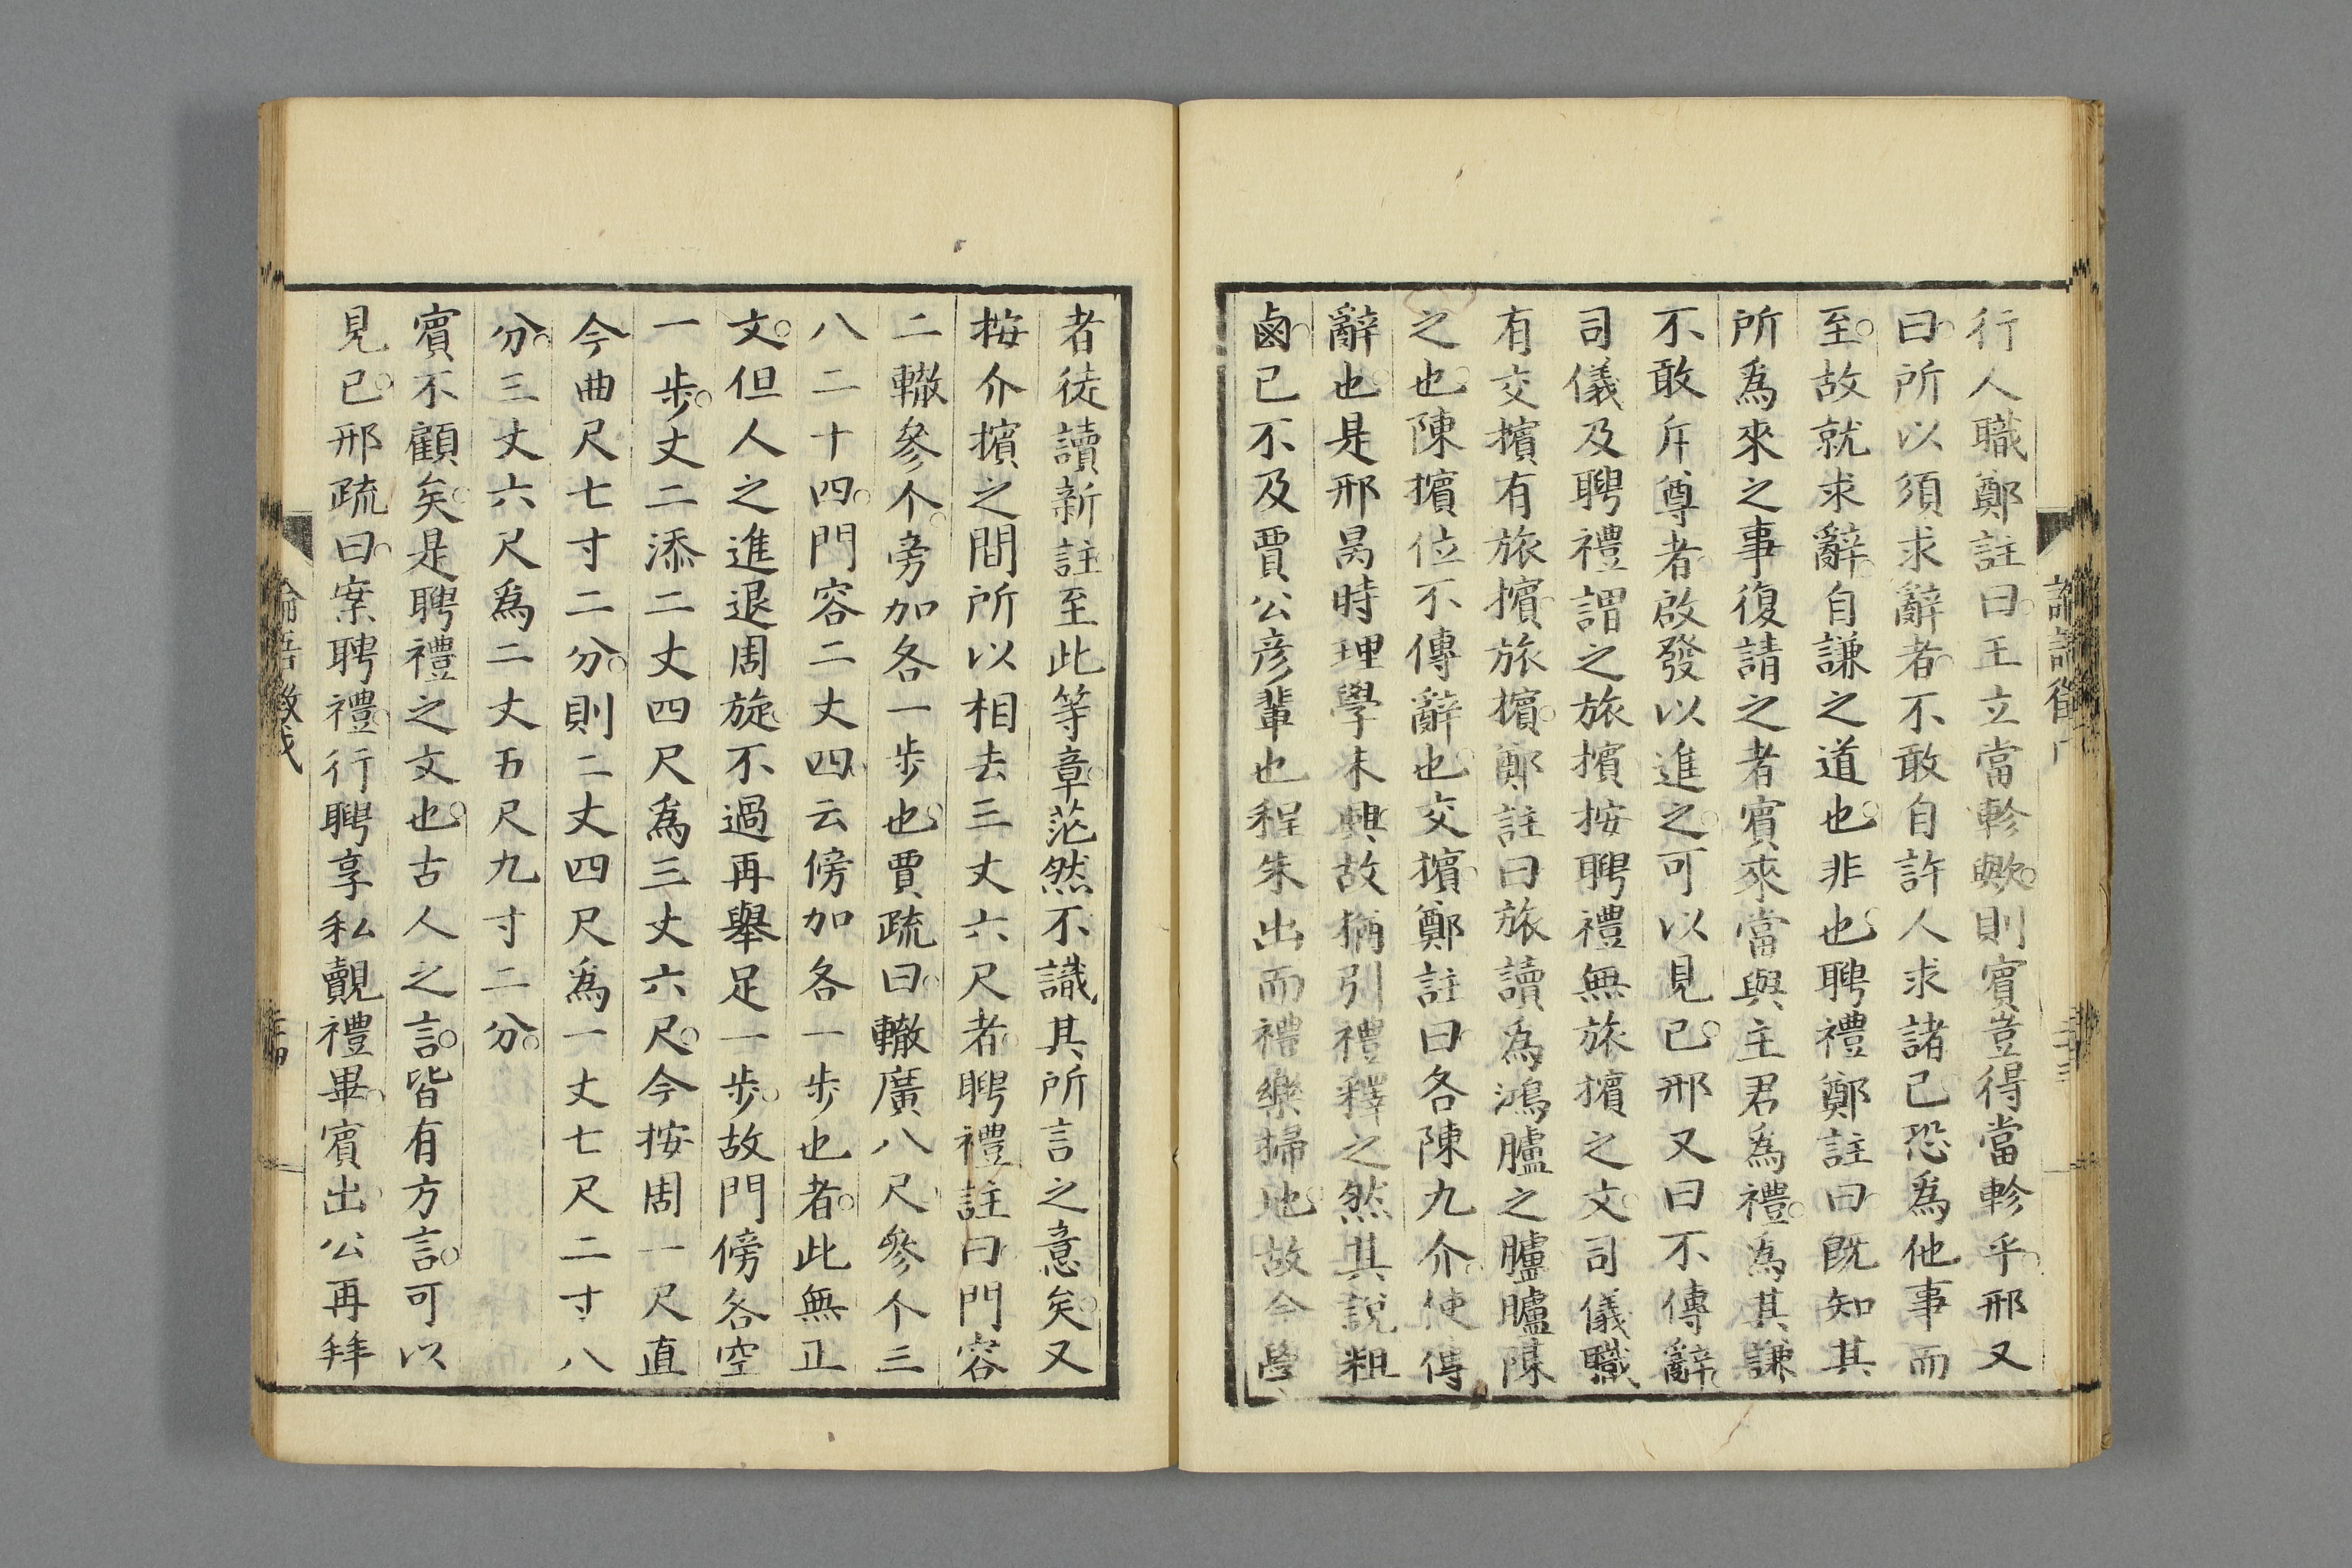 行人職鄭註曰王立當軫歟則賓豈得當軫乎邢又
曰所以須求辭者不敢自許人求諸己恐爲他事而
至故就求辭自謙之道也非也聘禮鄭註曰既知其
所爲來之事復請之者賓來當與主君爲禮爲其謙
不敢斥尊者啟發以進之可以見已邢又曰不傳辭
司儀及聘禮謂之旅擯按聘禮無旅擯之文司儀職
有交擯有旅擯旅擯鄭註曰旅讀爲鴻臚之臚臚陳
之也陳擯位不傳辭也交擯鄭註曰各陳九介使傳
辭也是邢昺時理學未興故猶引禮釋之然其說粗
鹵已不及賈公彥輩也程朱出而禮樂掃地故今學
者徒讀新註至此等章茫然不識其所言之意矣又
按介擯之間所以相去三丈六尺者聘禮註曰門容
二轍參个旁加各一步也賈疏曰轍廣八尺參个三
八二十四門容二丈四云傍加各一步也者此無正
文但人之進退周旋不過再舉足一步故門傍各空
一步丈二添二丈四尺爲三丈六尺今按周一尺直
今曲尺七寸二分則二丈四尺爲一丈七尺二寸八
分三丈六尺爲二丈五尺九寸二分
賓不顧矣是聘禮之文也古人之言皆有方言可以
見已邢疏曰案聘禮行聘享私覿禮畢賓出公再拜